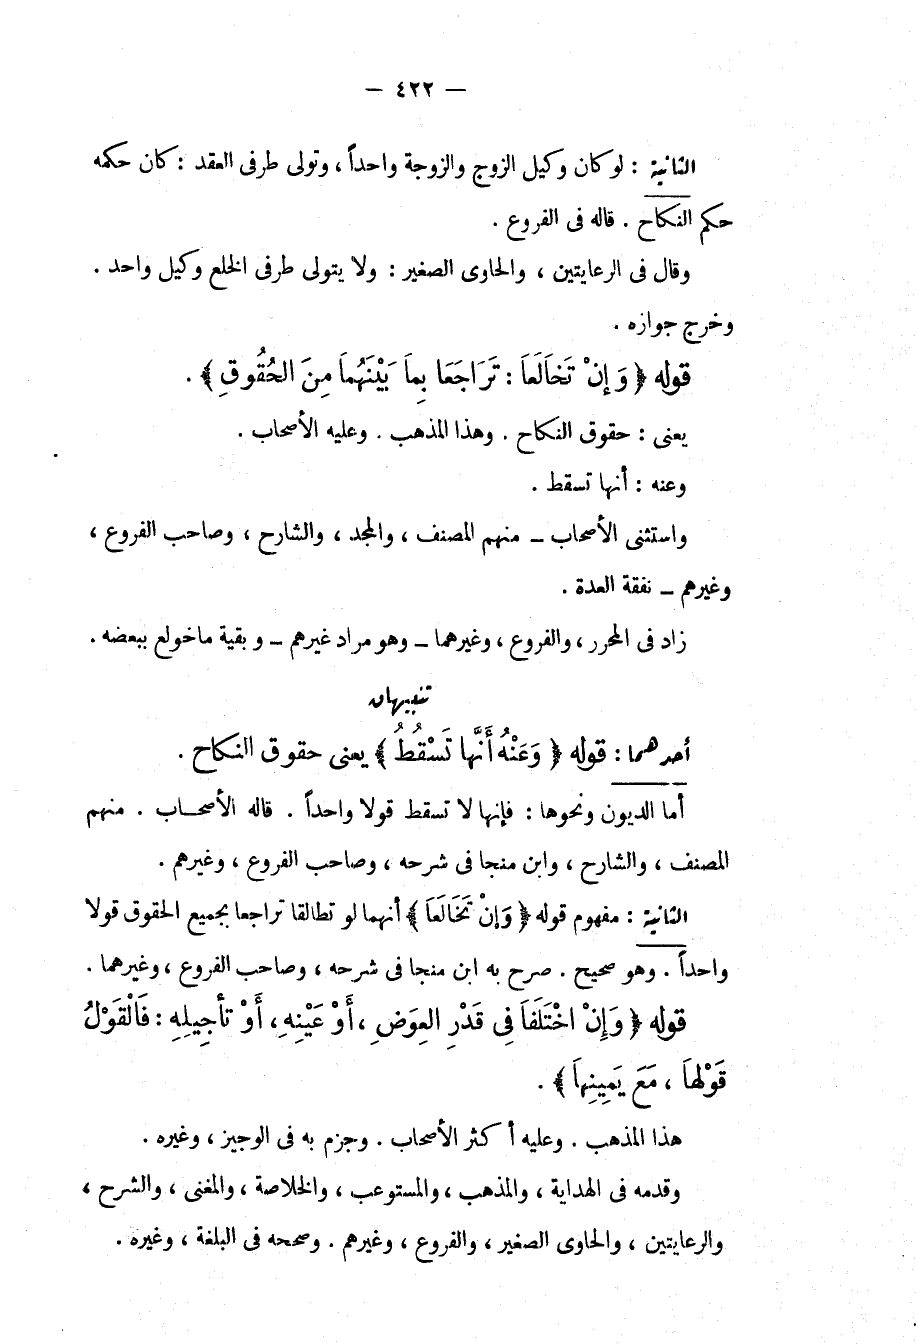 — ٤٢٢ —
الثانية : لو كان وكيل الزوج والزوجة واحداً ، وتولى طرفى العقد : كان حكمه
حكم النكاح . قاله فى الفروع .
وقال فى الرعايتين ، والحاوى الصغير : ولا يتولى طرفى الخلع وكيل واحد .
وخرج جوازه .
قوله ﴿ وَ إِنْ تَخَالَعَا : تَرَاجَعَا بِمَا بَيْنَهُمَا مِنَ الحُقُوقِ ﴾ .
يعنى : حقوق النكاح . وهذا المذهب . وعليه الأصحاب .
وعنه : أنها تسقط .
واستثنى الأصحاب – منهم المصنف ، والمجد ، والشارح ، وصاحب الفروع ،
وغيرهم – نفقة العدة .
زاد فى المحرر ، والفروع ، وغيرهما – وهو مراد غيرهم – و بقية ماخولع ببعضه .
تنبيهان
أحدهما : قوله ﴿ وَعَنْهُ أَنَّها تَسْقُطُ ﴾ يعنى حقوق النكاح .
أما الديون ونحوها : فإنها لا تسقط قولا واحداً . قاله الأصحــاب . منهم
المصنف ، والشارح ، وابن منجا فى شرحه ، وصاحب الفروع ، وغيرهم .
الثانية : مفهوم قوله ﴿ وَإِنْ تَخَالَعَا ﴾ أنهما لو تطالقا تراجعا بجميع الحقوق قولا
واحداً . وهو صحيح . صرح به ابن منجا فى شرحه ، وصاحب الفروع ، وغيرهما .
قوله ﴿ وَإِنْ اخْتَلَفَا فِى قَدْرِ العِوَضِ ، أَوْ عَيْنِهِ ، أَوْ تَأجِيلِهِ : فَالْقَوْلُ
قَوْلُهَا ، مَعَ يَمِينِهَا ﴾ .
هذا المذهب . وعليه أكثر الأصحاب . وجزم به فى الوجيز ، وغيره .
وقدمه فى الهداية ، والمذهب ، والمستوعب ، والخلاصة ، والمغنى ، والشرح ،
والرعايتين ، والحاوى الصغير ، والفروع ، وغيرهم . وصححه فى البلغة ، وغيره .